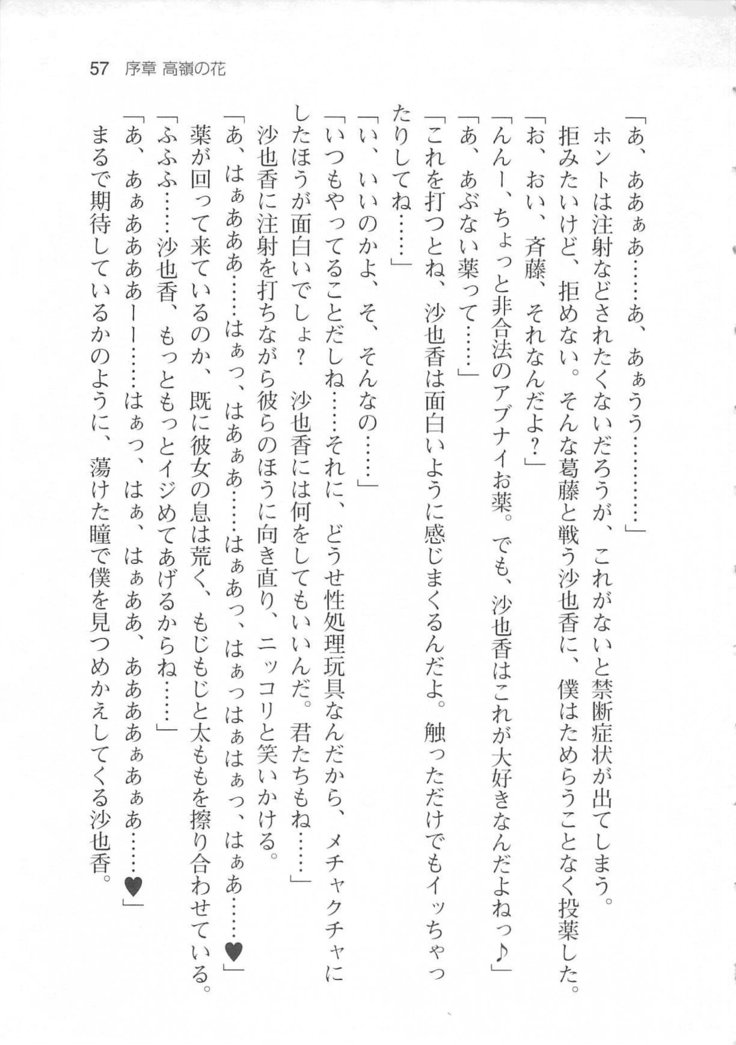 57 序章 高嶺の花
「あ、ああぁあ……あ、あぁうう…………」
ホントは注射などされたくないだろうが、これがないと禁断症状が出てしまう。
拒みたいけど、拒めない。そんな葛藤と戦う沙也香に、僕はためらうことなく投薬した。
「お、おい、斉藤、それなんだよ?」
「んんー、ちょっと非合法のアブナイお薬。でも、沙也香はこれが大好きなんだよねっ♪」
「あ、あぶない薬って……」
「これを打つとね、沙也香は面白いように感じまくるんだよ。触っただけでもイッちゃっ
たりしてね……」
「い、いいのかよ、そ、そんなの……」
「いつもやってることだしね……それに、どうせ性処理玩具なんだから、メチャクチャに
したほうが面白いでしょ? 沙也香には何をしてもいいんだ。君たちもね……」
沙也香に注射を打ちながら彼らのほうに向き直り、ニッコリと笑いかける。
「あ、はぁあああ……はぁっ、はあぁあ……はぁあっ、はぁっはぁはぁっ、はぁあ……♥」
薬が回って来ているのか、既に彼女の息は荒く、もじもじと太ももを擦り合わせている。
「ふふふ……沙也香、もっともっとイジめてあげるからね……」
「あ、あぁあああーー……はぁっ、はぁ、はぁああ、ああああぁあぁあ……♥」
まるで期待しているかのように、蕩けた瞳で僕を見つめかえしてくる沙也香。